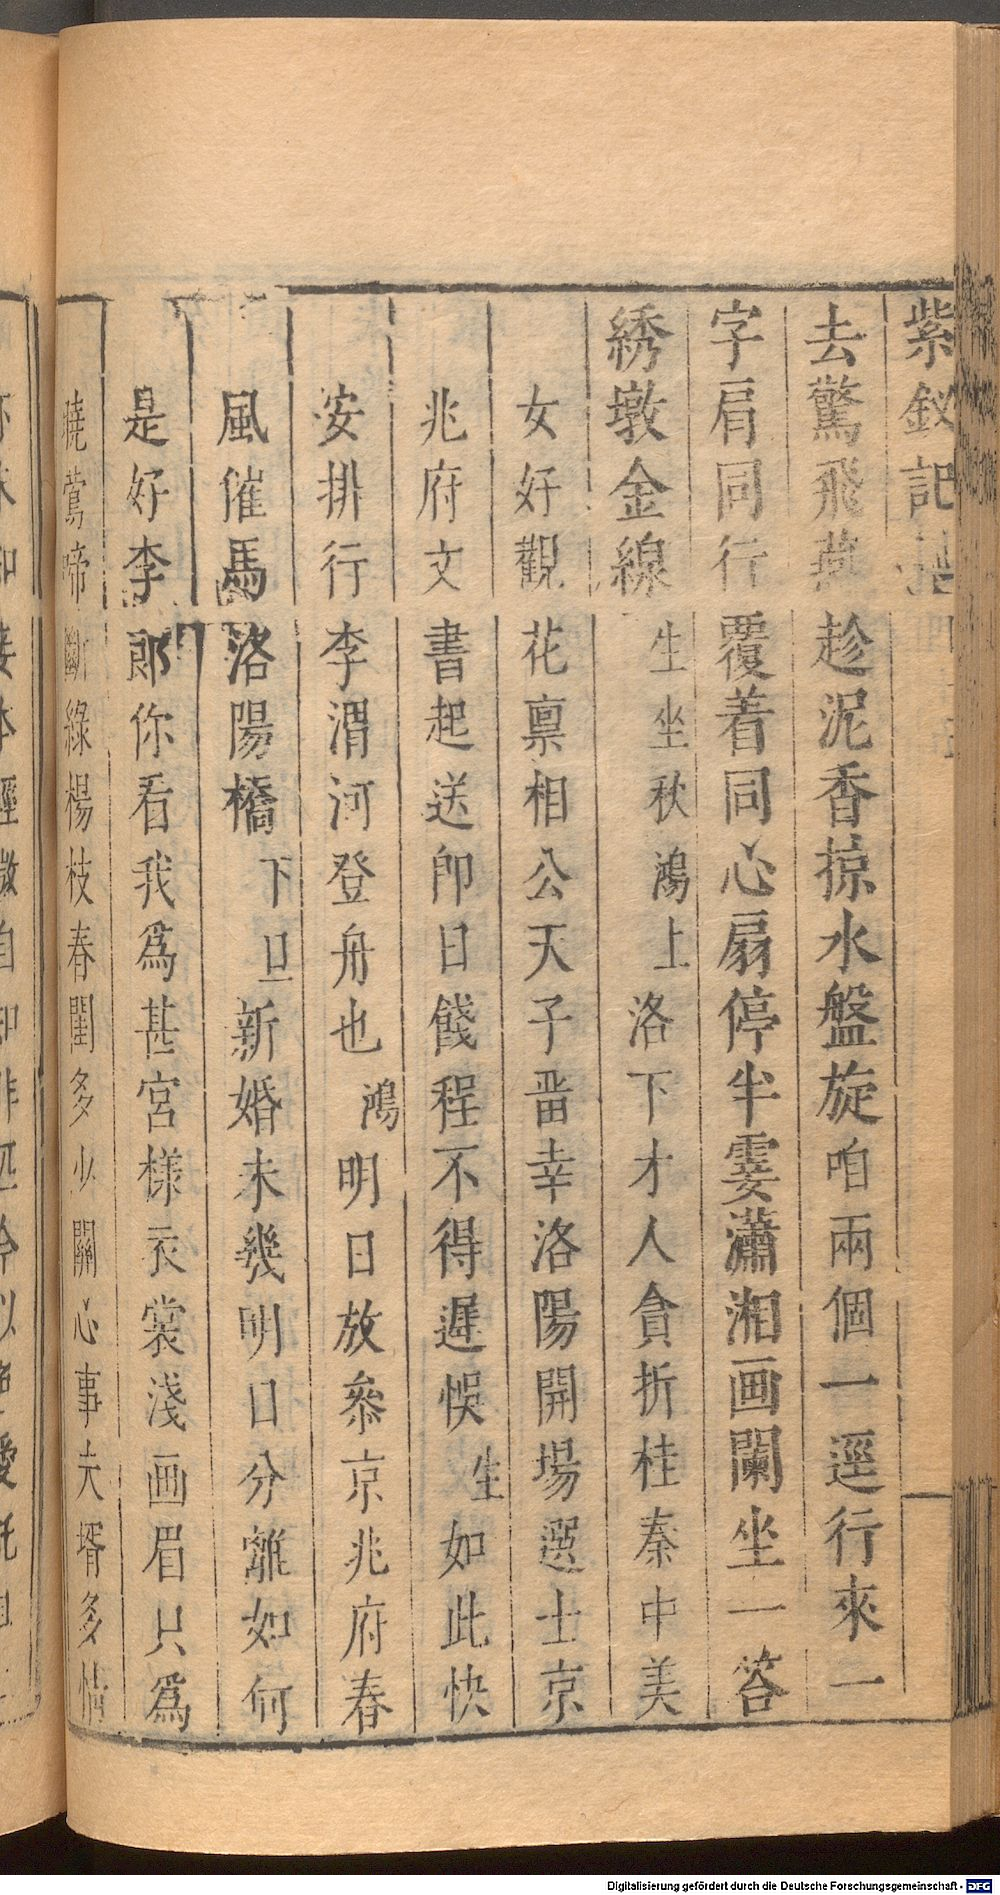 紫釵記
去驚飛燕趁泥香掠水盤旋咱兩個一逕行來一
字肩同行覆着同心扇停半霎瀟湘画闌坐一答
綉墩金線生坐秋鴻上洛下才人貪折桂秦中美
女好觀花禀相公天子畱幸洛陽開場選士京
兆府文書起送即日餞程不得遲悞生如此快
安排行李渭河登舟也鴻明日放參京兆府春
風催馬洛陽橋下旦新婚未幾明日分離如何
是好李郎你看我為甚宮樣衣裳淺画眉只為
曉鶯啼斷綠楊枝春閨多少關心事夫壻多情
Digitalisierung gefördert durch die Deutsche Forschungsgemeinschaft - DFG